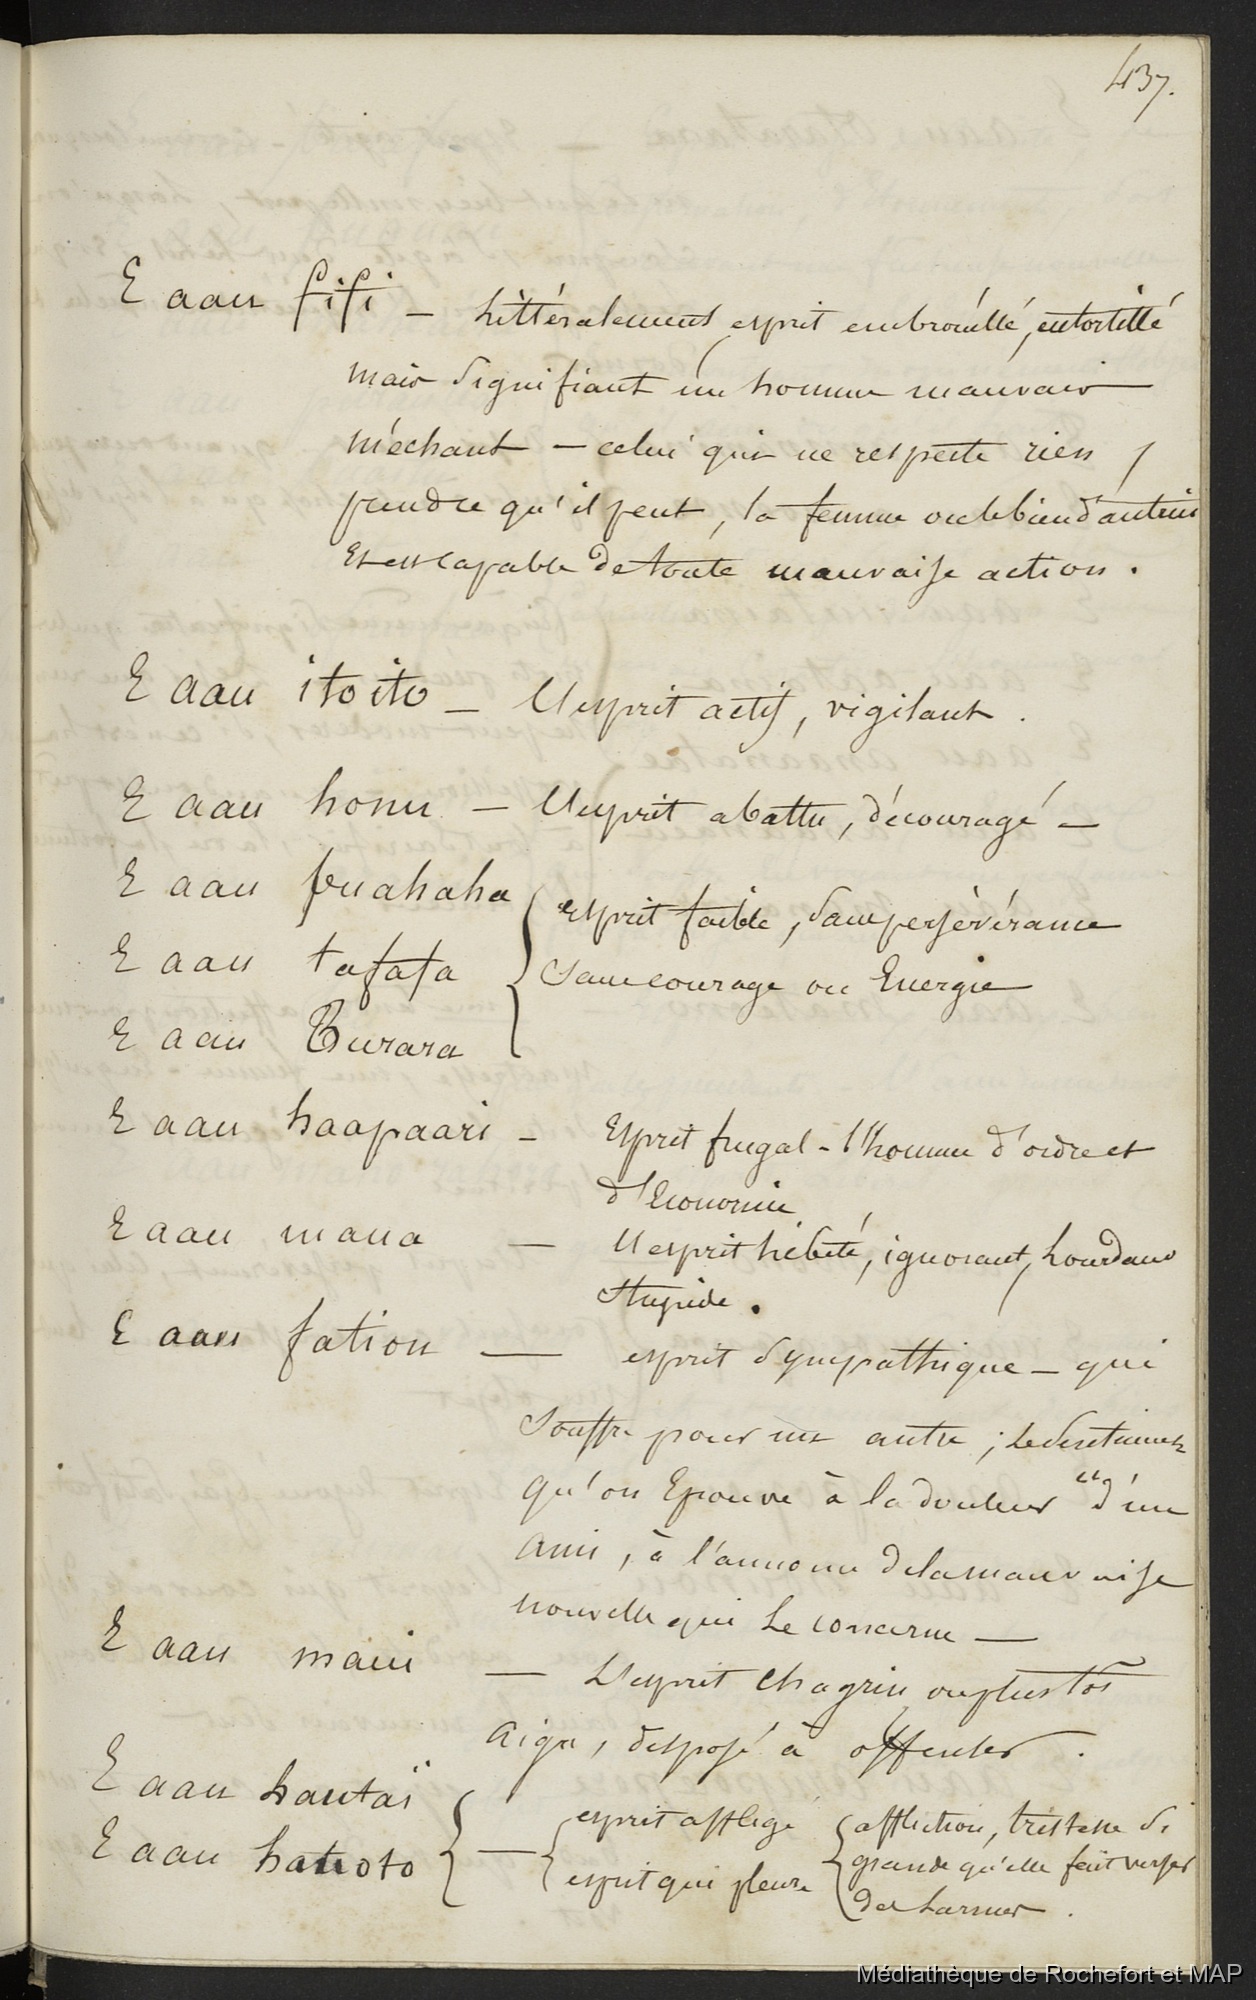 437.
E aau fifi — Littéralement esprit embrouillé, entortillé
mais signifiant un homme mauvais
méchant — celui qui ne respecte rien,
prendre qu'il peut, la femme ou le bien d'autrui
et est capable de toute mauvaise action.
E aau itoito — L'esprit actif, vigilant.
E aau honu — L'esprit abattu, découragé —
E aau puahaha
esprit faible, sans persévérance
E aau tafafa
sans courage ou Energie
E aau Turara
E aau haapaari — Esprit frugal - l'homme d'ordre et
d'Economie
E aau maua — L'esprit hébété, ignorant, Lourdaud
Stupide.
E aau fatiou — esprit sympathique — qui
souffre pour un autre ; le sentiment
qu'on Eprouve à la douleur d'un
ami, à l'annonce de la mauvaise
nouvelle qui le concerne —
E aau maui — L'esprit chagrin ou plustôt
aigri, disposé à offenser.
E aau hautaï
E aau hatioto
esprit affligé
esprit qui pleure
affliction, tristesse si
grande qu'elle fait verser
des Larmes.
Médiathèque de Rochefort et MAP